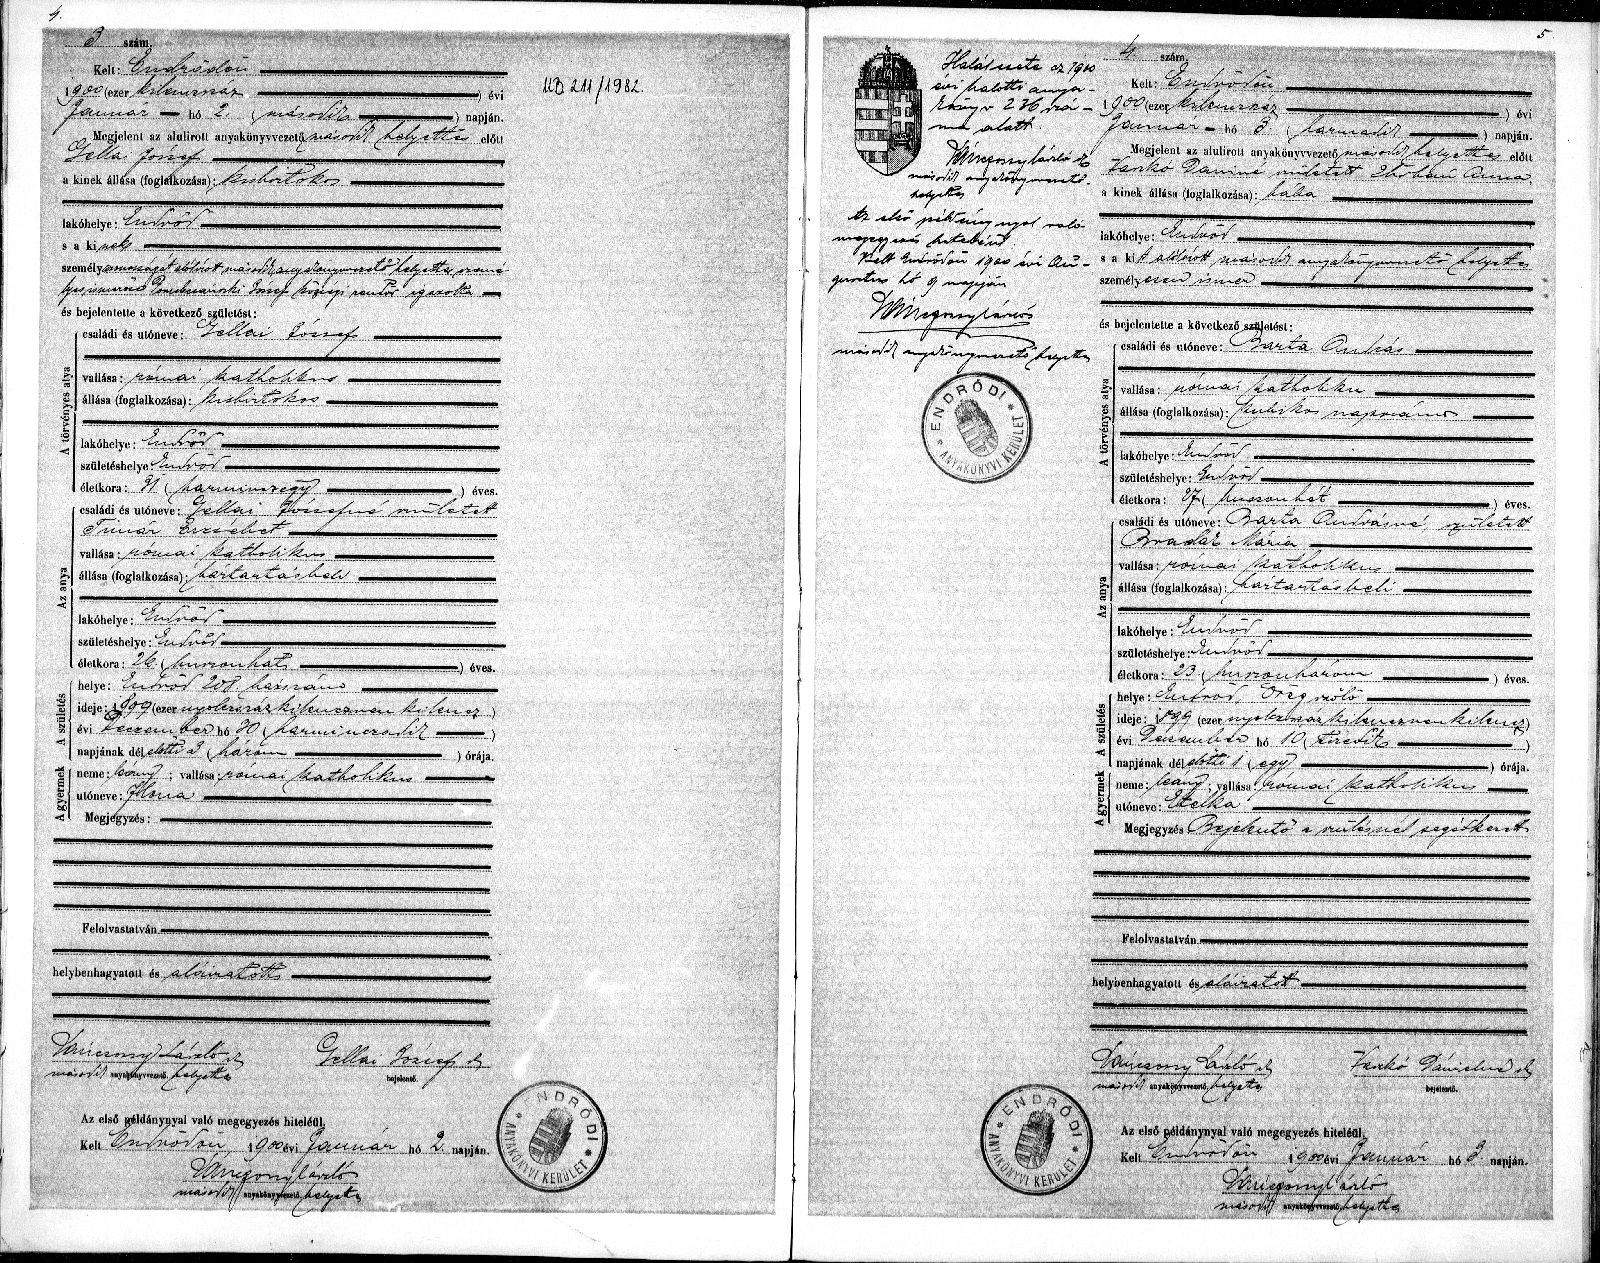 4.
3 szám.
Kelt: Endrődön
1900 (ezer kilenczszáz ) évi
Január hó 2. ( második ) napján.
Megjelent az alulirott anyakönyvvezető második helyettes előtt
Gellai József
a kinek állása (foglalkozása): kisbirtokos
lakóhelye: Endrőd
s a kinek
személyazonosságát alólirott második anyakönyvvezető helyettes szemé-
lyes ismerőse József községi rendőr igazolta
és bejelentette a következő születést:
A törvényes atya
családi és utóneve: Gellai József
vallása: római katholikus
állása (foglalkozása): kisbirtokos
lakóhelye: Endrőd
születéshelye: Endrőd
életkora: 31 ( harminczegy ) éves.
Az anya
családi és utóneve: Gellai Józsefné született
Tímár Erzsébet
vallása: római katholikus
állása (foglalkozása): háztartásbeli
lakóhelye: Endrőd
születéshelye: Endrőd
életkora: 26 ( huszonhat ) éves.
A születés
helye: Endrőd 208 házszám
ideje: 1899 (ezer nyolczszázkilenczvenkilencz )
évi December hó 30 ( harminczadik )
napjának dél előtti 3 ( három ) órája.
A gyermek
neme: leány ; vallása: római katholikus
utóneve: Ilona
Megjegyzés:
Felolvastatván,
helybenhagyatott és aláiratott
László
második anyakönyvvezető helyettes
Gellai József
bejelentő.
Az első példánynyal való megegyezés hiteléül.
Kelt Endrődön 1900 évi Január hó 2. napján.
László
második anyakönyvvezető helyettes
ENDRŐDI
ANYAKÖNYVI KERÜLET
211/1982.
5
Halálesete az 1900
évi halotti anya-
könyv 236 szá-
ma alatt.
László
második anyakönyvvezető
helyettes
Az első példánynyal való
megegyezés hiteléül.
Kelt Endrődön 1900 évi Au-
gusztus hó 9 napján
László
második anyakönyvvezető helyettes
ENDRŐDI
ANYAKÖNYVI KERÜLET
4 szám.
Kelt: Endrődön
1900 (ezer kilenczszáz ) évi
Január hó 3. ( harmadik ) napján.
Megjelent az alulirott anyakönyvvezető második helyettes előtt
Vaskó Dániné született Anna,
a kinek állása (foglalkozása): bába
lakóhelye: Endrőd
s a kit alólirott második anyakönyvvezető helyettes
személyesen ismer
és bejelentette a következő születést:
A törvényes atya
családi és utóneve: Barta András
vallása: római katholikus
állása (foglalkozása): kubikos napszámos
lakóhelye: Endrőd
születéshelye: Endrőd
életkora: 27 ( huszonhét ) éves.
Az anya
családi és utóneve: Barta Andrásné, született
Bradák Mária
vallása: római katholikus
állása (foglalkozása): háztartásbeli
lakóhelye: Endrőd
születéshelye: Endrőd
életkora: 23 ( huszonhárom ) éves.
A születés
helye: Endrőd, Öregszőlő
ideje: 1899 (ezer nyolczszázkilenczvenkilencz )
évi December hó 10 ( tizedik )
napjának dél előtti 1 ( egy ) órája.
A gyermek
neme: leány ; vallása: római katholikus
utóneve: Etelka
Megjegyzés Bejelentő a szülésnél segédkezett
Felolvastatván,
helybenhagyatott és aláiratott
László
második anyakönyvvezető helyettes
Vaskó Dánielné
bejelentő.
Az első példánynyal való megegyezés hiteléül.
Kelt Endrődön 1900 évi Január hó 3. napján.
László
második anyakönyvvezető helyettes
ENDRŐDI
ANYAKÖNYVI KERÜLET